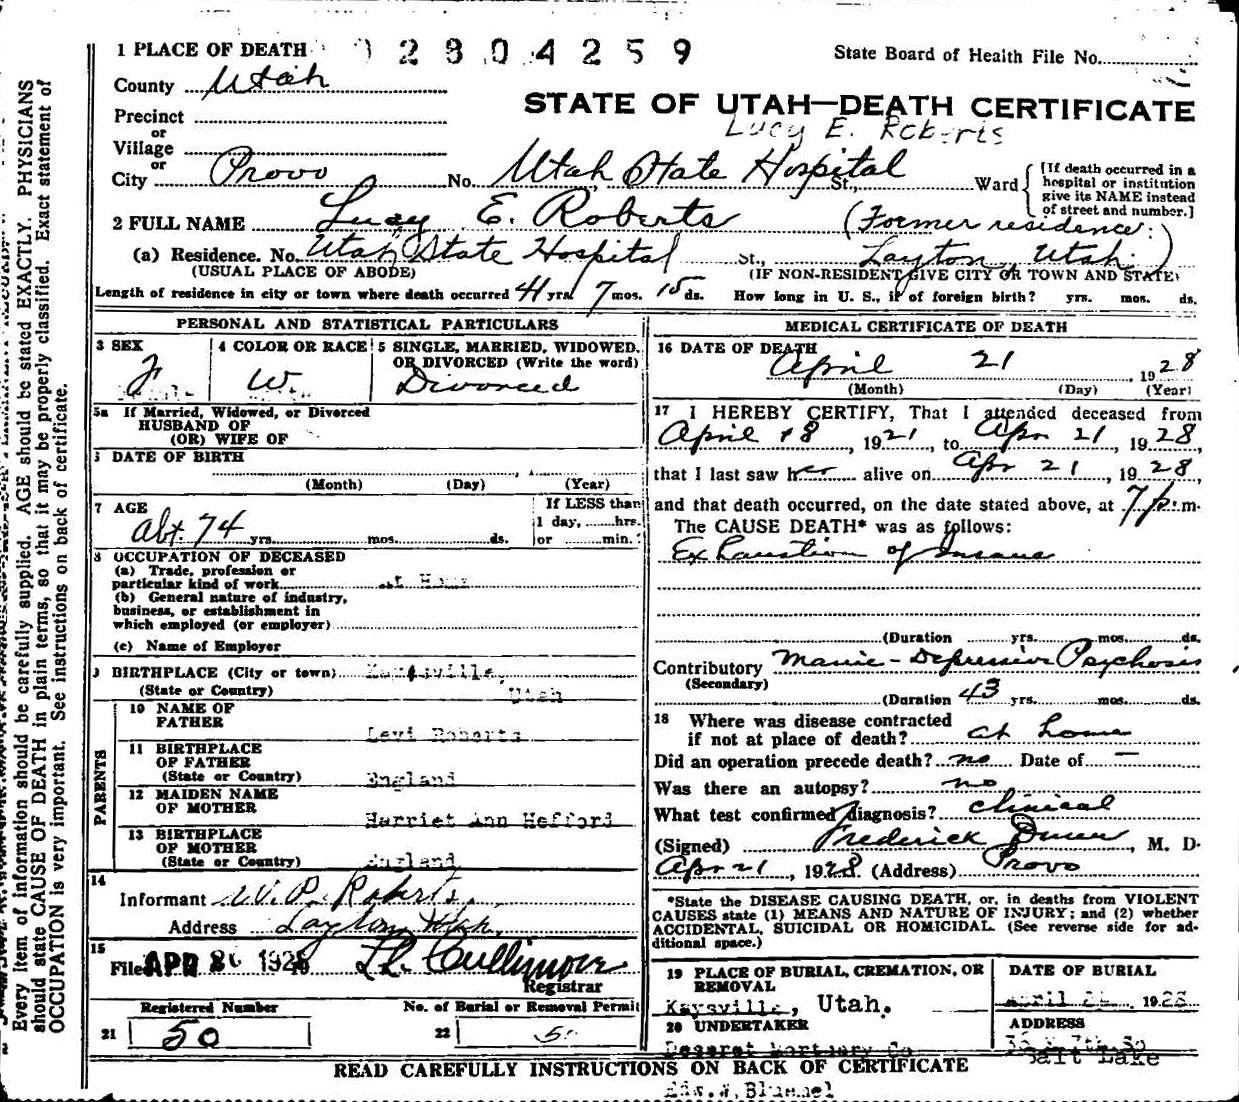 1 PLACE OF DEATH 2804259 State Board of Health File No.
County Utah
STATE OF UTAH—DEATH CERTIFICATE
Precinct
Lucy E. Roberts
or
Village
or
City Provo No. Utah State Hospital St., Ward [If death occurred in a hospital or institution give its NAME instead of street and number.]
2 FULL NAME Lucy E. Roberts (Former residence:
(a) Residence. No. Utah State Hospital St., Layton, Utah)
(USUAL PLACE OF ABODE) (IF NON-RESIDENT GIVE CITY OR TOWN AND STATE)
Length of residence in city or town where death occurred 41 yrs. 7 mos. 15 ds. How long in U. S., if of foreign birth? yrs. mos. ds.
PERSONAL AND STATISTICAL PARTICULARS
3 SEX 4 COLOR OR RACE 5 SINGLE, MARRIED, WIDOWED, OR DIVORCED (Write the word)
F W. Divorced
5a If Married, Widowed, or Divorced
HUSBAND OF
(OR) WIFE OF
DATE OF BIRTH
(Month) (Day) (Year)
7 AGE If LESS than
1 day, hrs.
Abt. 74 yrs. mos. ds. or min.
8 OCCUPATION OF DECEASED
(a) Trade, profession or
particular kind of work At Home
(b) General nature of industry,
business, or establishment in
which employed (or employer)
(c) Name of Employer
9 BIRTHPLACE (City or town) Kaysville,
(State or Country) Utah
PARENTS
10 NAME OF
FATHER Levi Roberts
11 BIRTHPLACE
OF FATHER
(State or Country) England
12 MAIDEN NAME
OF MOTHER Harriet Ann Hefford
13 BIRTHPLACE
OF MOTHER
(State or Country) England
14
Informant W. P. Roberts,
Address Layton, Utah.
15
Filed APR 26 1928
Registrar
Registered Number No. of Burial or Removal Permit
21 50 22 50
MEDICAL CERTIFICATE OF DEATH
16 DATE OF DEATH
April 21, 1928
(Month) (Day) (Year)
17 I HEREBY CERTIFY, That I attended deceased from
April 18, 1921, to Apr 21 1928,
that I last saw her alive on Apr 21, 1928,
and that death occurred, on the date stated above, at 7 p.m.
The CAUSE DEATH* was as follows:
Exhaustion of Insane
(Duration yrs. mos. ds.
Contributory Manic-Depressive Psychosis
(Secondary)
(Duration 43 yrs. mos. ds.
18 Where was disease contracted
if not at place of death? at home
Did an operation precede death? no Date of —
Was there an autopsy? no
What test confirmed diagnosis? clinical
(Signed) Frederick, M. D.
Apr 21, 1928. (Address) Provo
*State the DISEASE CAUSING DEATH, or, in deaths from VIOLENT
CAUSES state (1) MEANS AND NATURE OF INJURY; and (2) whether
ACCIDENTAL, SUICIDAL OR HOMICIDAL. (See reverse side for ad-
ditional space.)
19 PLACE OF BURIAL, CREMATION, OR REMOVAL DATE OF BURIAL
Kaysville, Utah. April 1928
20 UNDERTAKER ADDRESS
Deseret Mortuary Co
Salt Lake
READ CAREFULLY INSTRUCTIONS ON BACK OF CERTIFICATE
Edw. W.
Every item of information should be carefully supplied. AGE should be stated EXACTLY. PHYSICIANS
should state CAUSE OF DEATH in plain terms, so that it may be properly classified. Exact statement of
OCCUPATION is very important. See instructions on back of certificate.